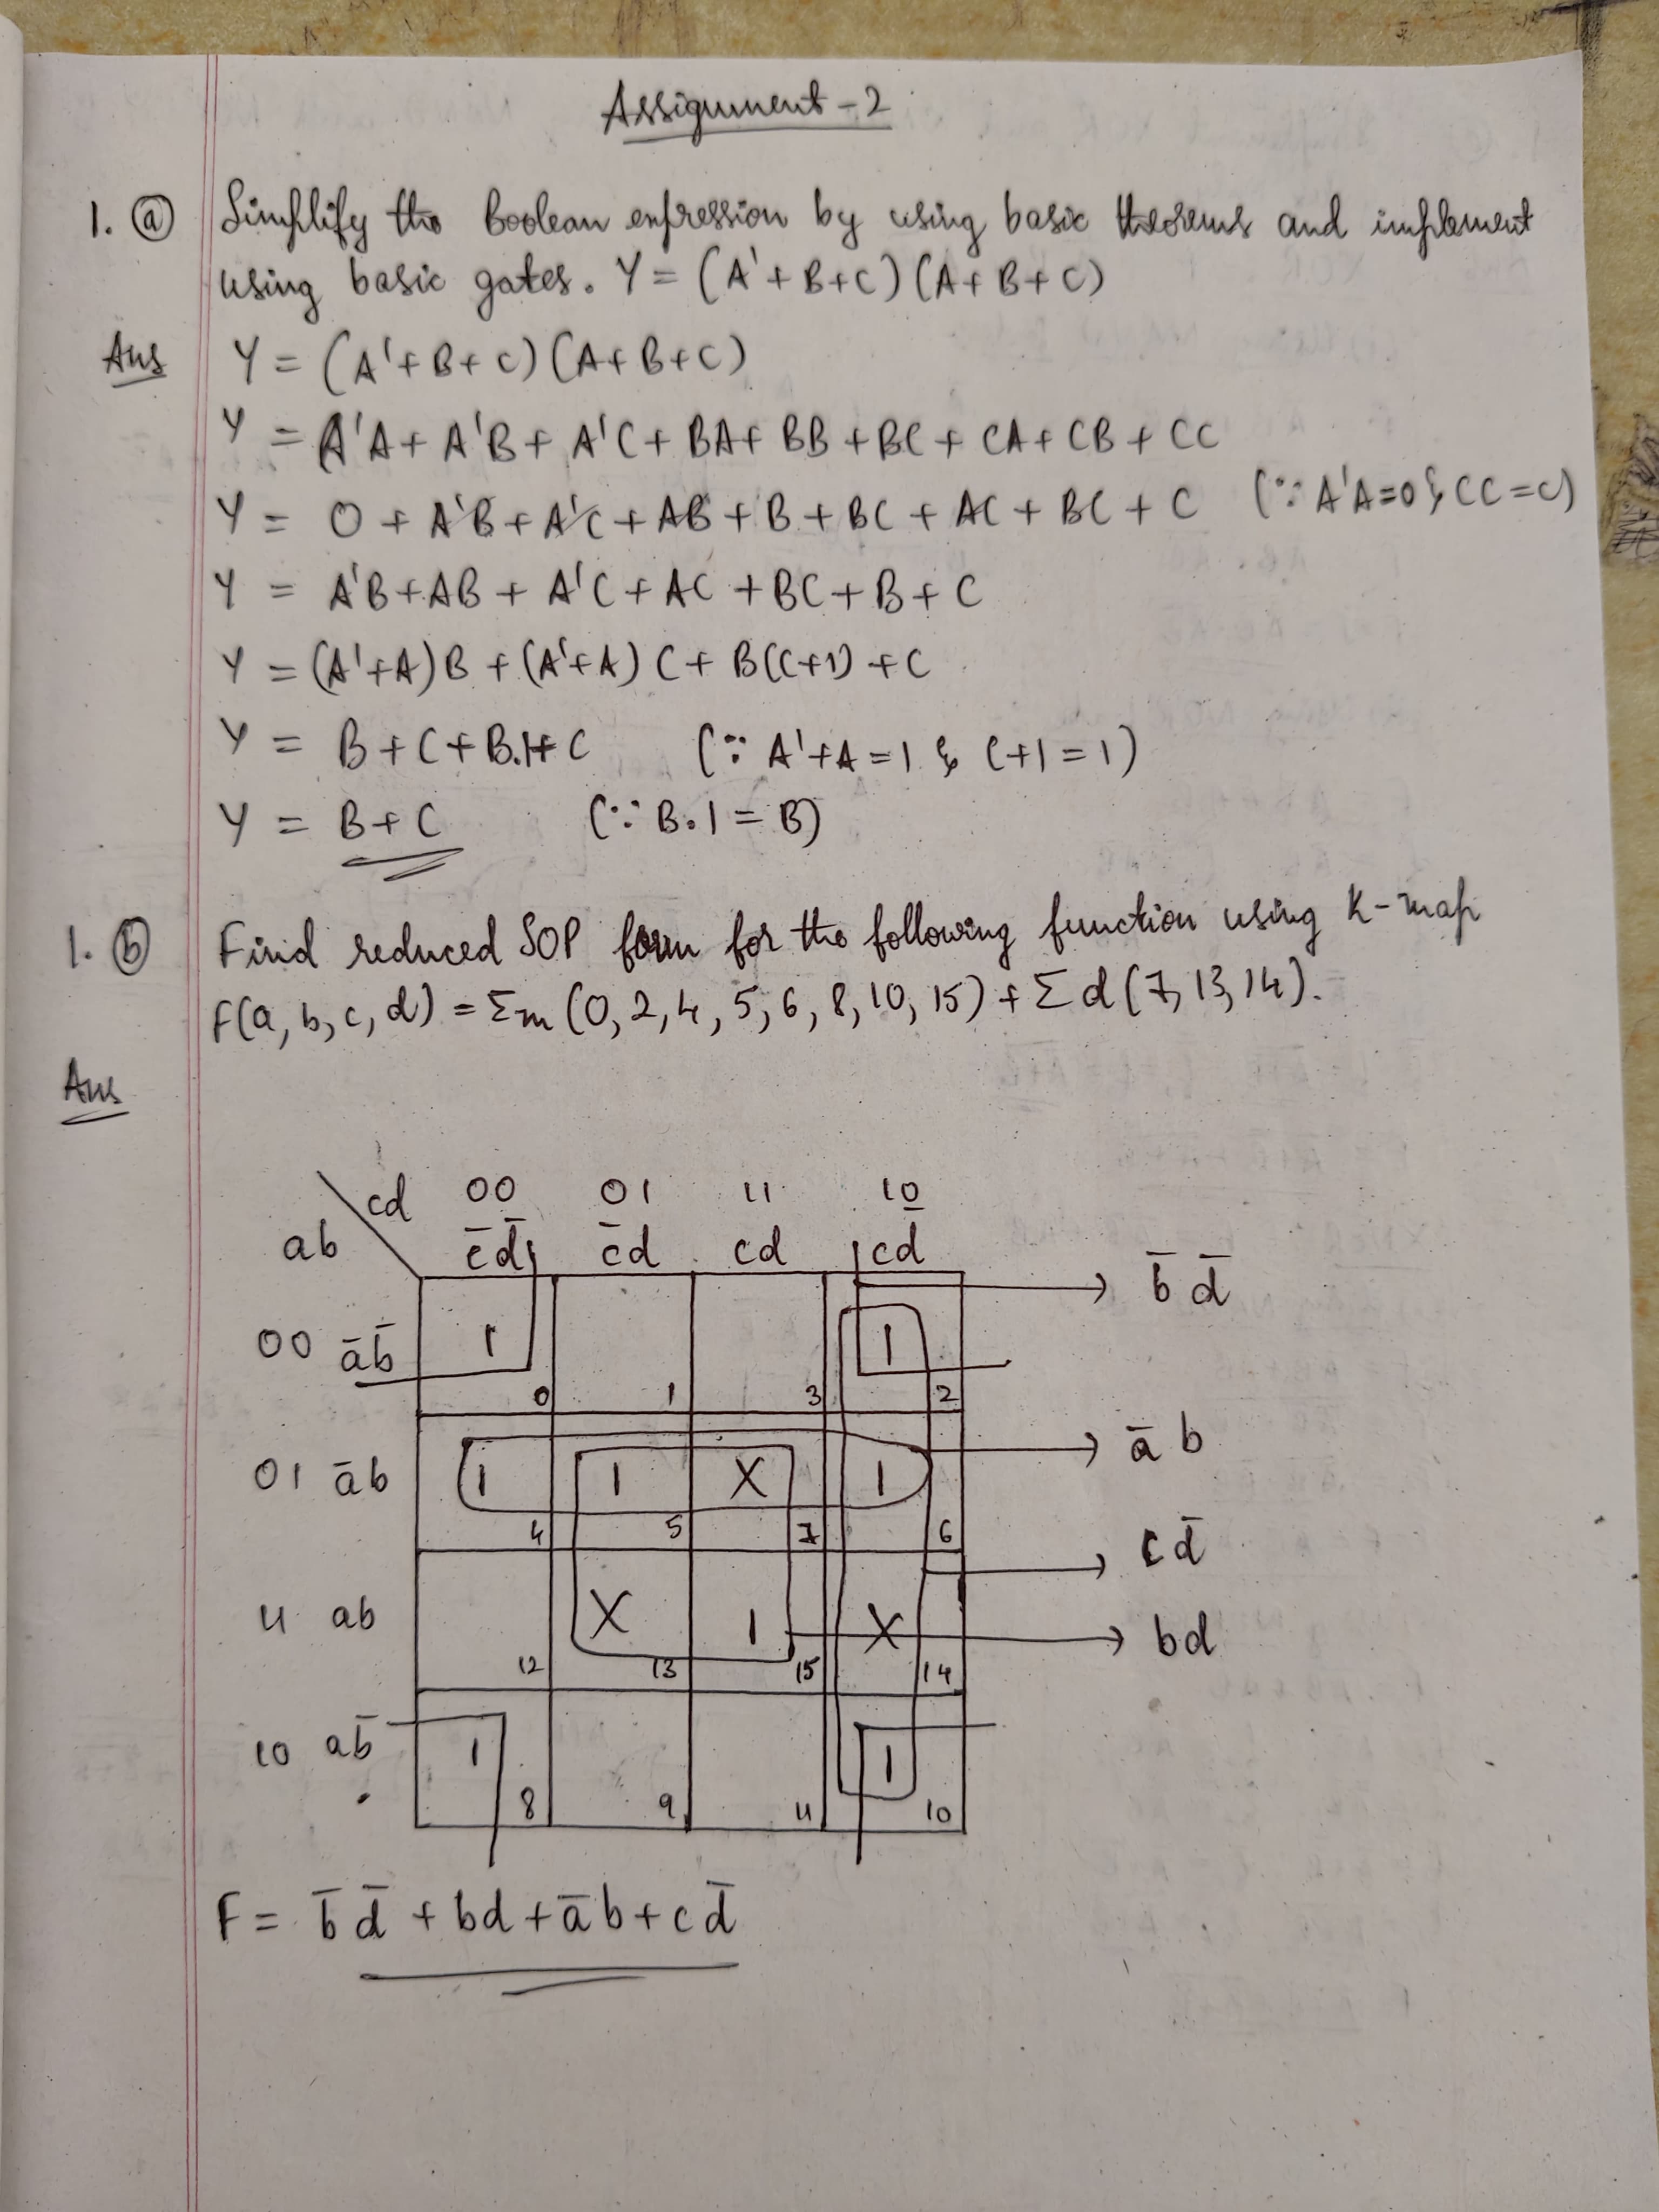 Assignment-2
1. (a) Simplify the boolean expression by using basic theorems and implement
using basic gates. Y = (A'+B+C)(A+B+C)
Ans Y = (A'+B+C)(A+B+C)
Y = A'A + A'B + A'C + BA + BB + BC + CA + CB + CC
Y = 0 + A'B + A'C + AB + B + BC + AC + BC + C (∵ A'A=0 & CC=C)
Y = A'B + AB + A'C + AC + BC + B + C
Y = (A'+A)B + (A'+A)C + B(C+1) + C
Y = B+C+B.1+C (∵ A'+A=1 & C+1=1)
Y = B+C (∵ B.1=B)
1. (b) Find reduced SOP form for the following function using K-map
F(a, b, c, d) = Σm (0, 2, 4, 5, 6, 8, 10, 15) + Σd (7, 13, 14).
Ans
cd 00 01 11 10
ab c̄d̄ c̄d cd cd̄
b̄ d̄
00 āb̄ 1 1
0 1 3 2
ā b
01 āb 1 1 X 1
4 5 7 6
c d̄
11 ab X 1 X bd
12 13 15 14
10 ab̄ 1 1
8 9 11 10
F = b̄ d̄ + bd + ā b + c d̄